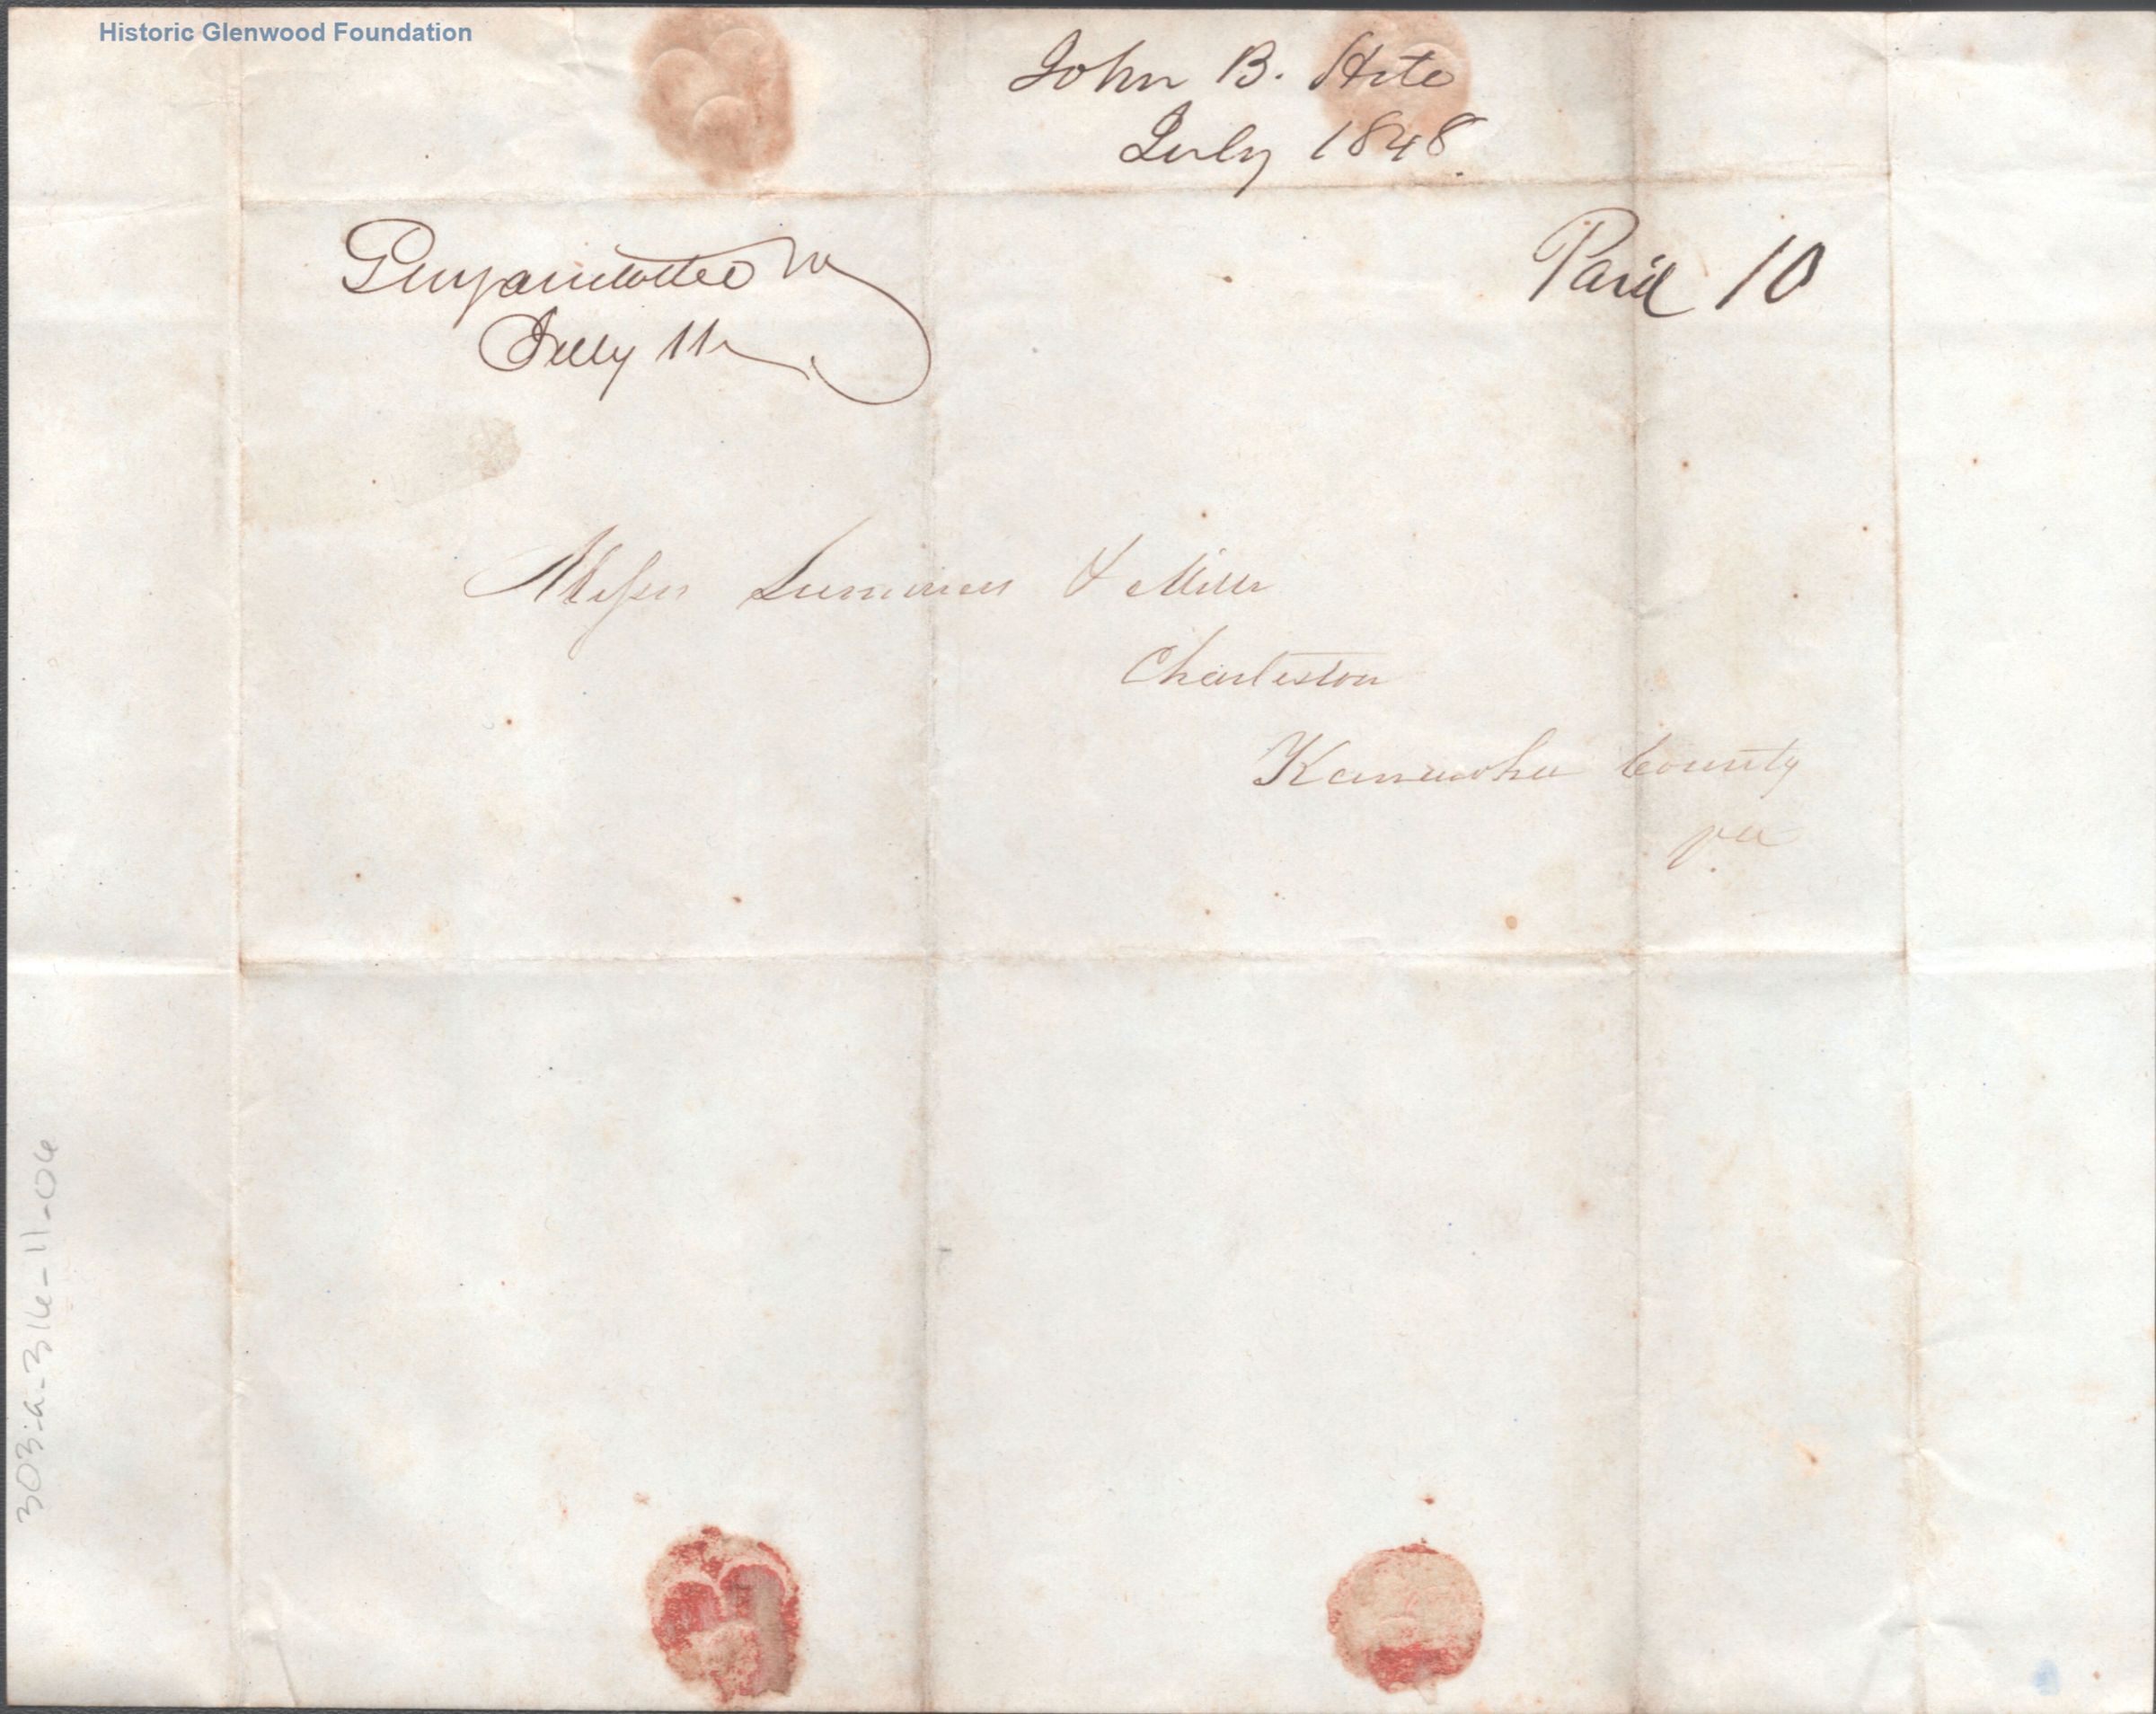 Historic Glenwood Foundation
John B. Hite
July 1848.
Guyandotte Va
July 11
Paid 10
Messrs Summers & Miller
Charleston
Kanawha County
Va
303-a-316-11-06